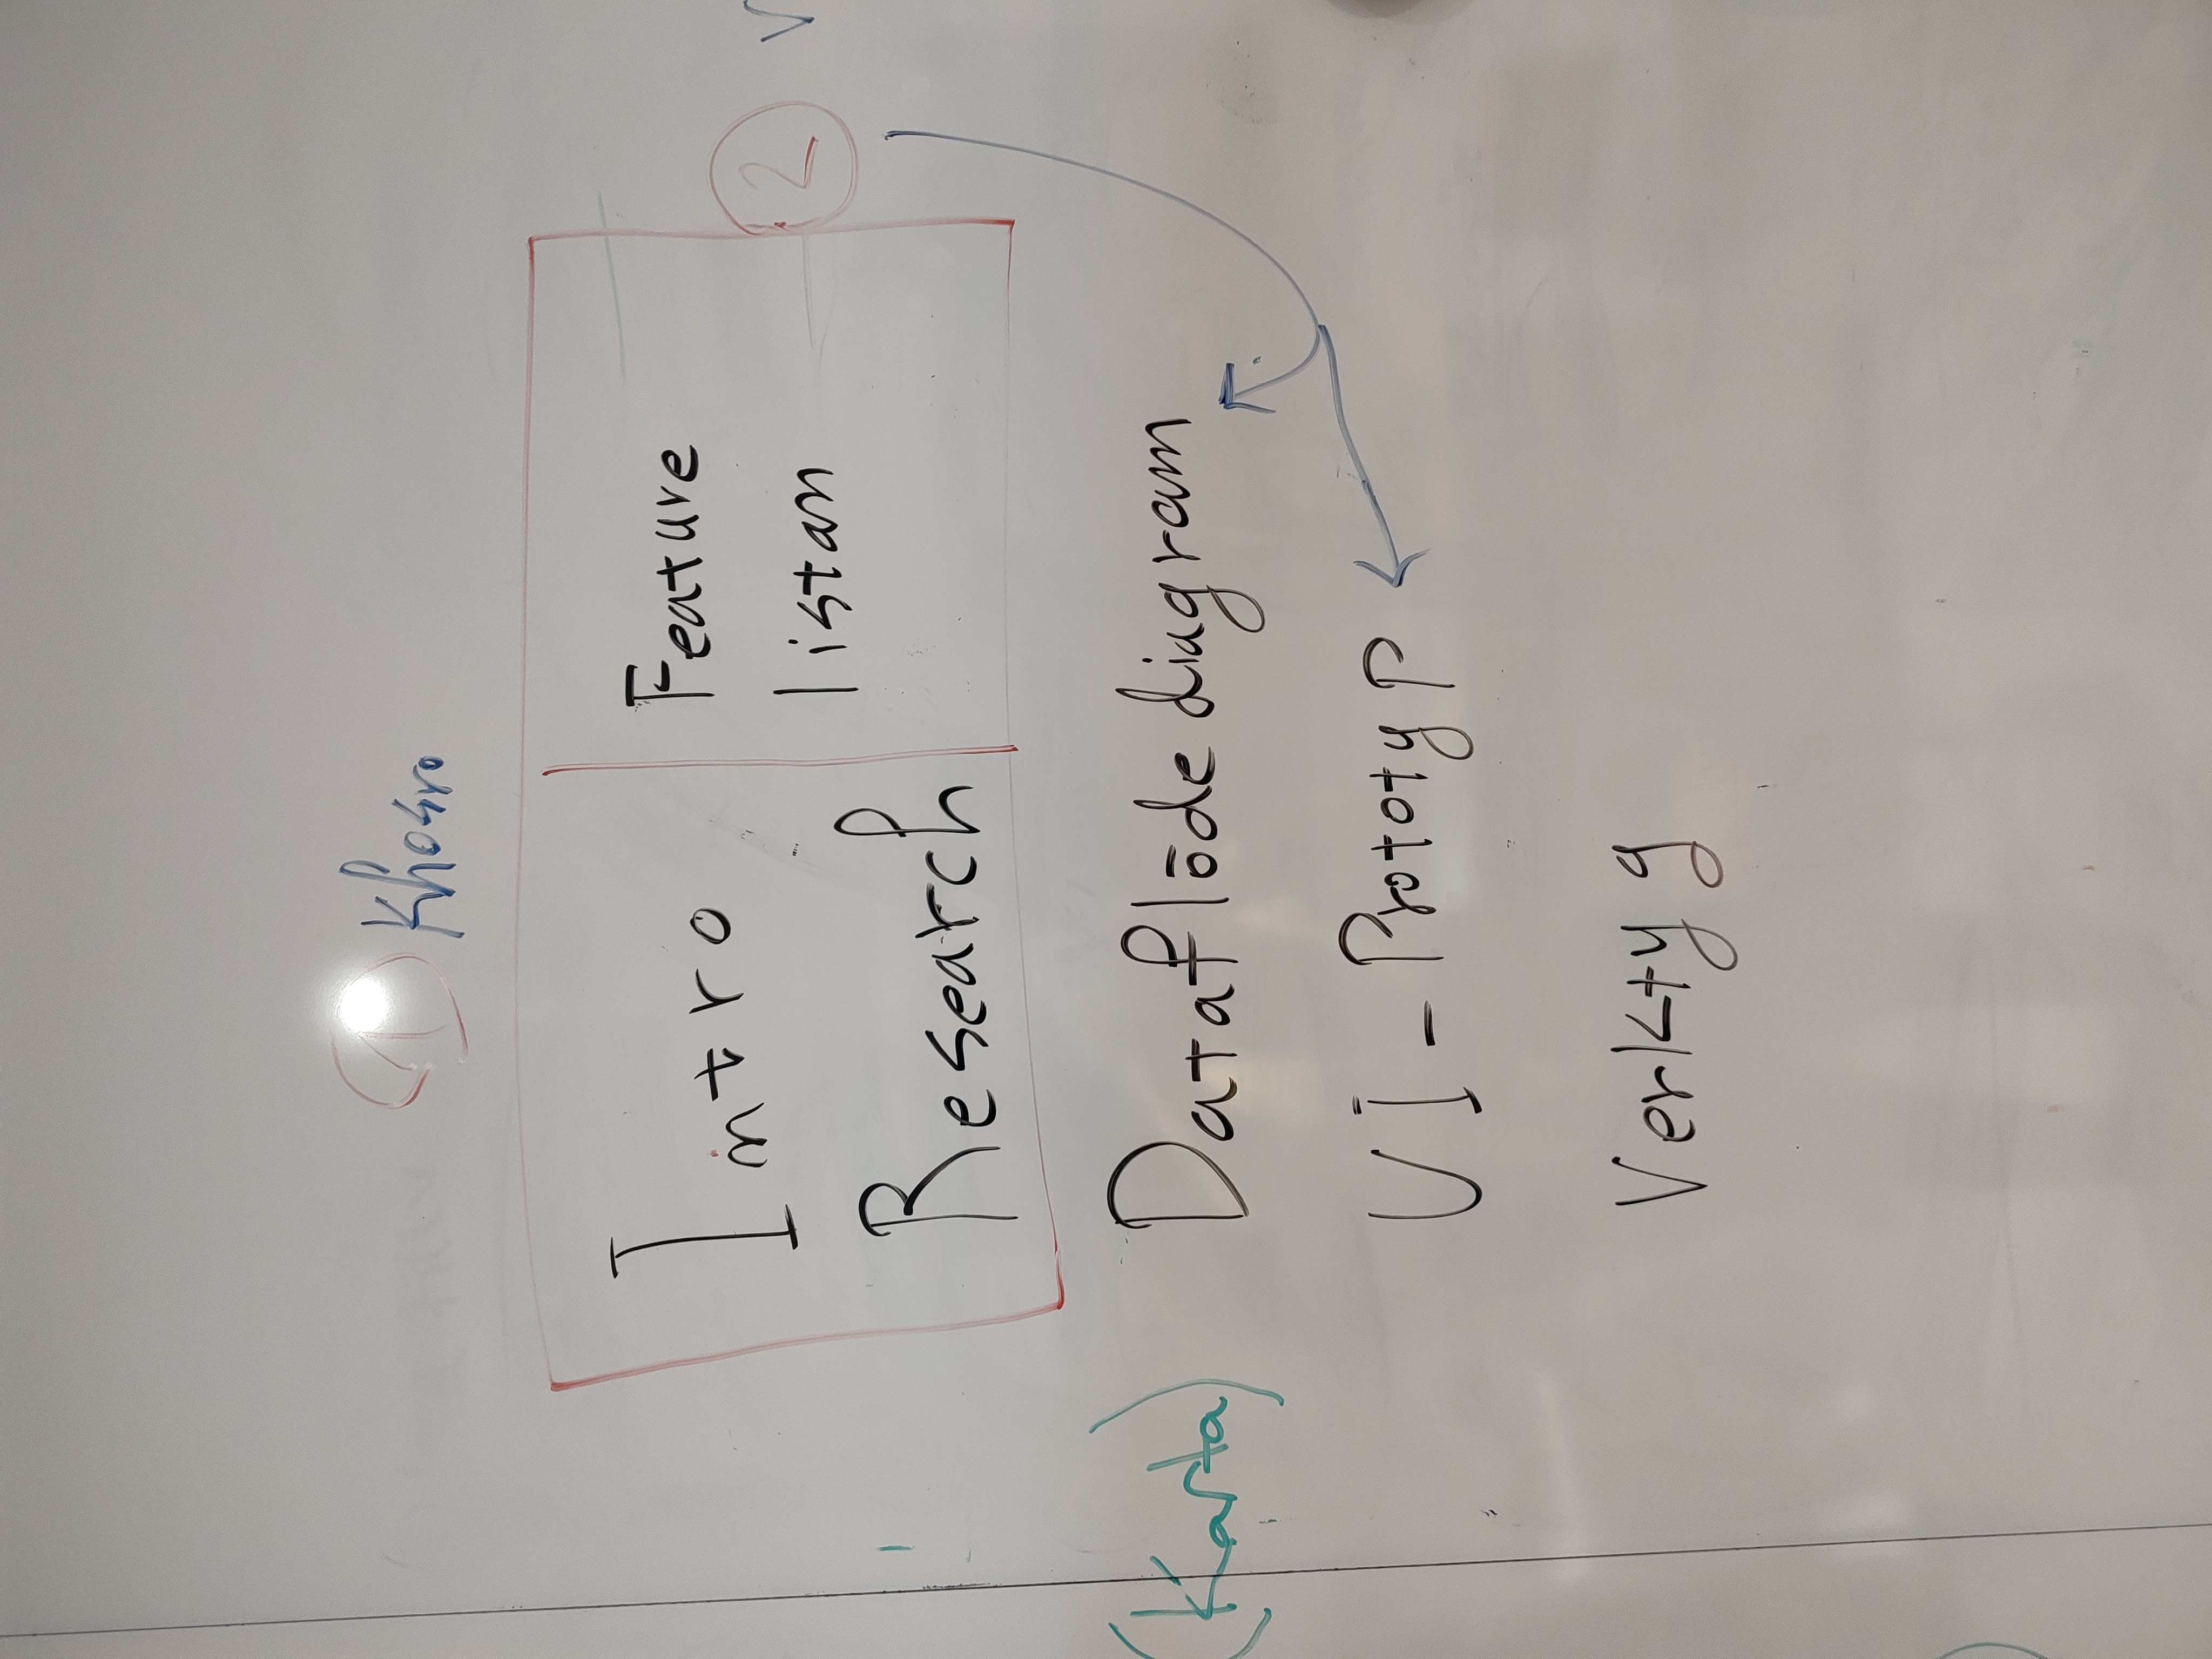 1 Khosro
Intro
Research
Feature
listan
2
(Karta)
Dataflöde diagram
UI - Prototyp
Verktyg